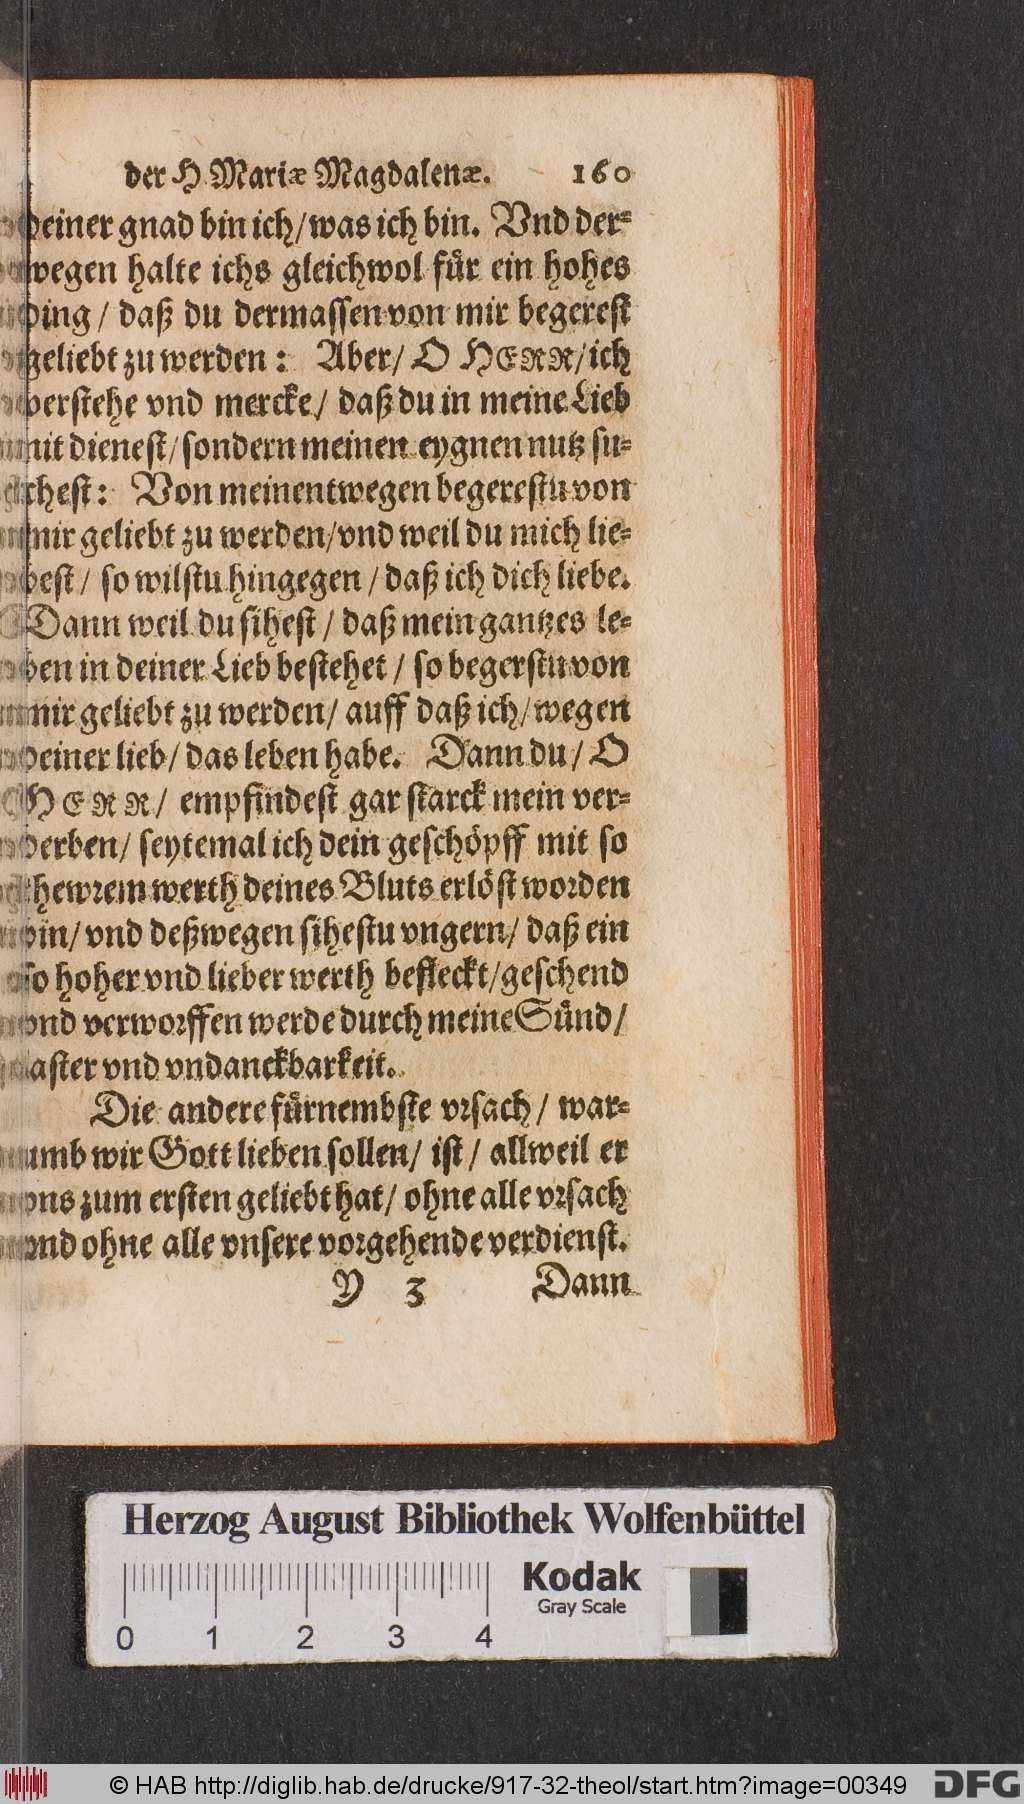 der H Mariæ Magdalenæ. 160
deiner gnad bin ich/was ich bin. Vnd der⸗
wegen halte ichs gleichwol fuͤr ein hohes
ding/ daß du dermassen von mir begerest
geliebt zu werden: Aber/ O HERR/ich
verstehe vnd mercke/ daß du in meine Lieb
nit dienest/sondern meinen eygnen nutz su⸗
chest: Von meinentwegen begerestu von
mir geliebt zu werden/vnd weil du mich lie⸗
best/ so wilstu hingegen/daß ich dich liebe.
Dann weil du sihest/ daß mein gantzes le⸗
ben in deiner Lieb bestehet/ so begerstu von
mir geliebt zu werden/ auff daß ich/wegen
deiner lieb/ das leben habe. Dann du/ O
HERR/ empfindest gar starck mein ver⸗
derben/ seytemal ich dein geschoͤpff mit so
thewrem werth deines Bluts erloͤst worden
bin/ vnd deßwegen sihestu vngern/ daß ein
so hoher vnd lieber werth befleckt/geschend
vnd verworffen werde durch meine Suͤnd/
laster vnd vndanckbarkeit.
Die andere fuͤrnembste vrsach/ war⸗
umb wir Gott lieben sollen/ ist/ allweil er
vns zum ersten geliebt hat/ ohne alle vrsach
vnd ohne alle vnsere vorgehende verdienst.
Y 3 Dann
Herzog August Bibliothek Wolfenbüttel
Kodak
Gray Scale
0 1 2 3 4
© HAB http://diglib.hab.de/drucke/917-32-theol/start.htm?image=00349 DFG